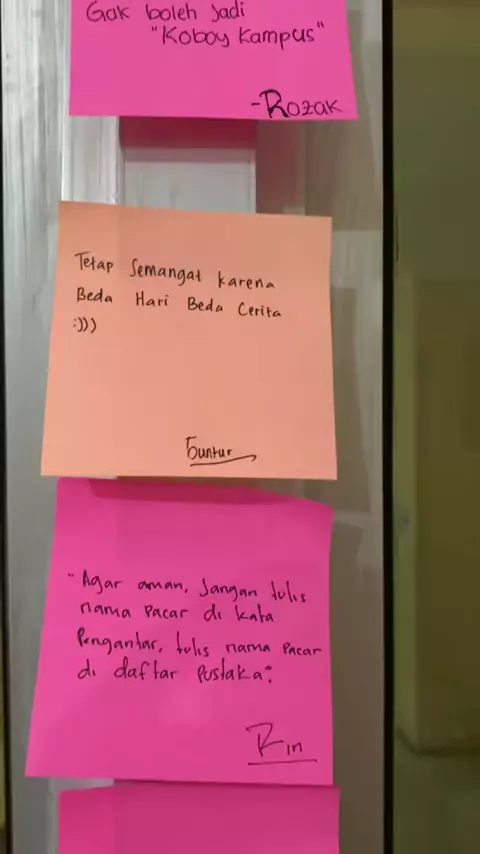 Gak boleh Jadi
"Koboy Kampus"
-Rozak
Tetap Semangat karena
Beda Hari Beda Cerita
:)))
Guntur
"Agar aman, Jangan tulis
nama Pacar di kata
Pengantar, tulis nama Pacar
di daftar Pustaka".
Rin